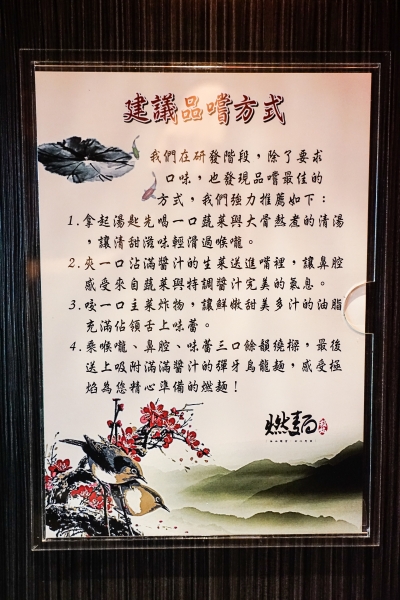 建議品嚐方式
我們在研發階段，除了要求
口味，也發現品嚐最佳的
方式，我們強力推薦如下：
1.拿起湯匙先喝一口蔬菜與大骨熬煮的清湯
，讓清甜滋味輕滑過喉嚨。
2.夾一口沾滿醬汁的生菜送進嘴裡，讓鼻腔
感受來自蔬菜與特調醬汁完美的氣息。
3.咬一口主菜炸物，讓鮮嫩甜美多汁的油脂
充滿佔領舌上味蕾。
4.乘喉嚨、鼻腔、味蕾三口餘韻繞樑，最後
送上吸附滿滿醬汁的彈牙烏龍麵，感受極
焰為您精心準備的燃麵！
燃麵